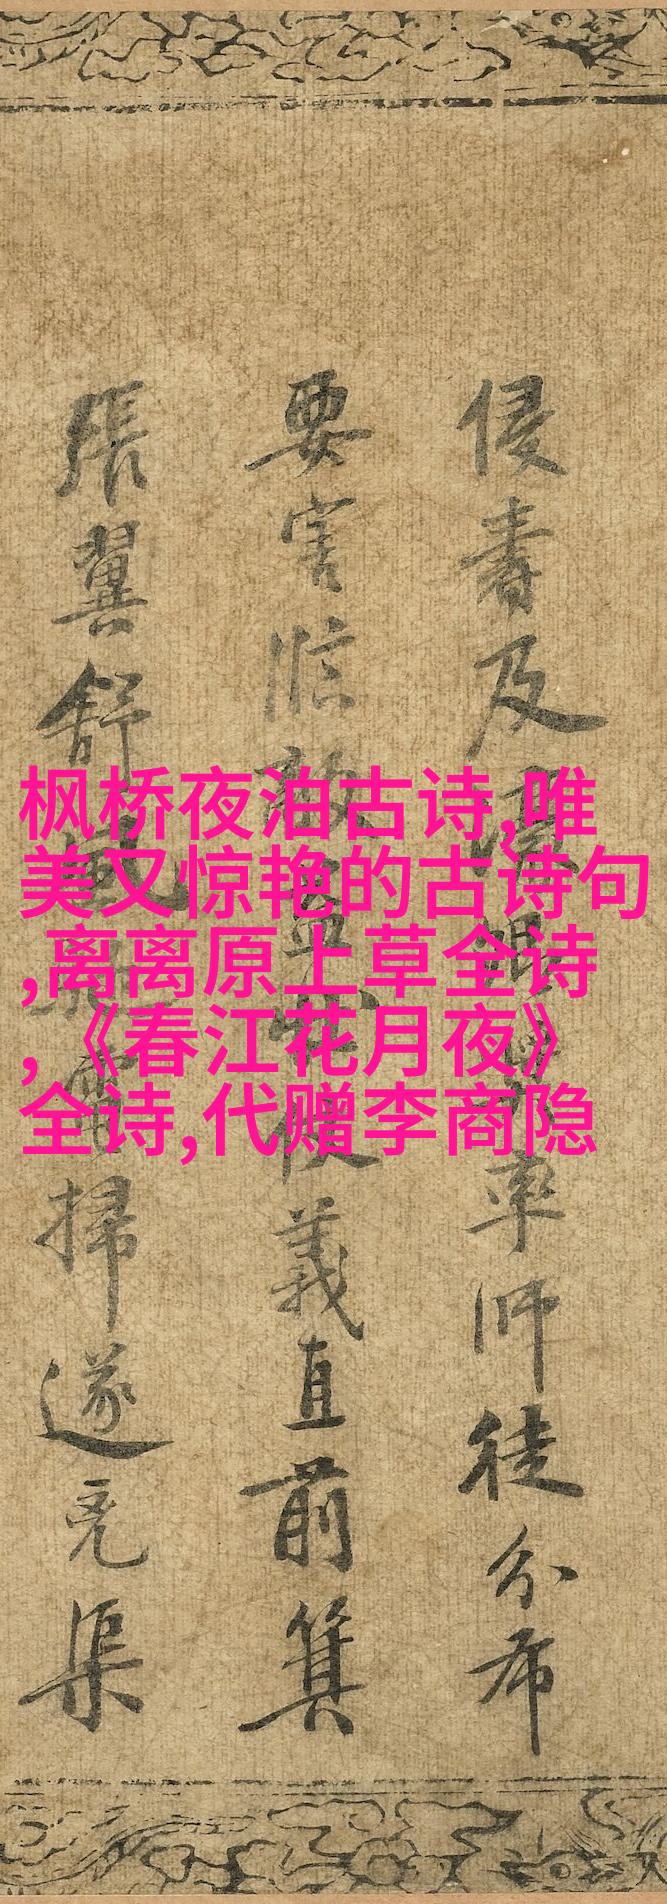 侵書及率師徒分布
要害臨敵義直前箕
張翼舒風電掃遂克渠
枫桥夜泊古诗,唯
美又惊艳的古诗句
,离离原上草全诗
,《春江花月夜》
全诗,代赠李商隐